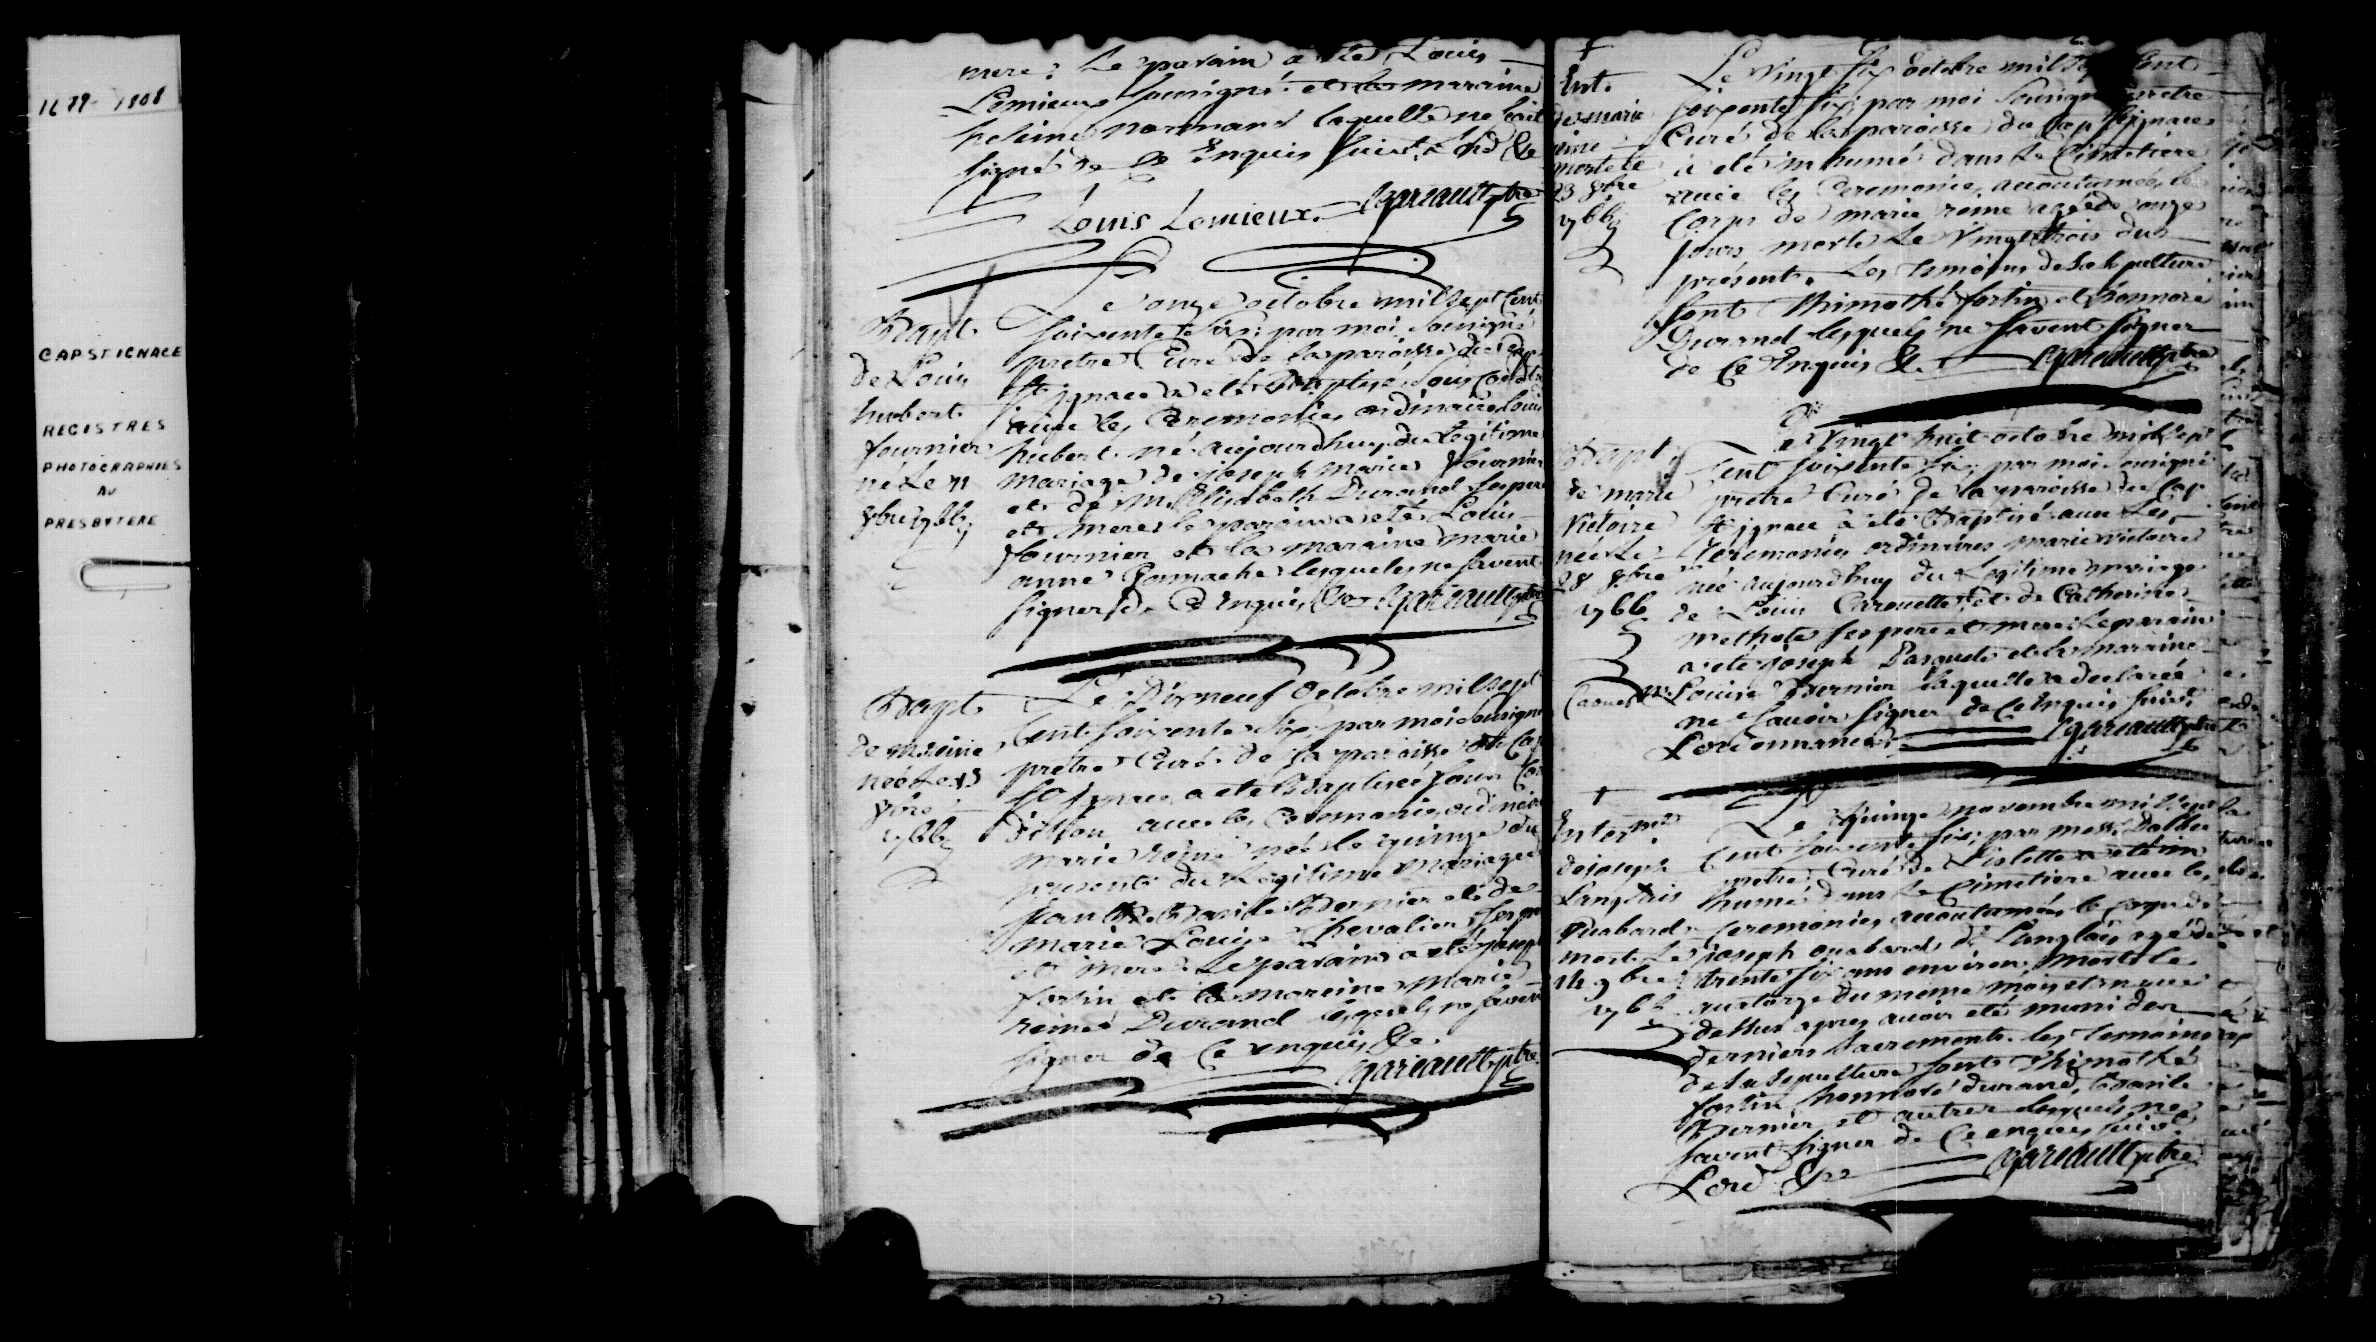 1679-1808
CAP ST IGNACE
REGISTRES
PHOTOGRAPHIES
AU
PRESBYTERE
mere: Le parain a ete Louis
Lemieux sousigné et la maraine
helaine normand laquelle ne sait
signé de ce Enquis suivt Lord &c
Louis Lemieux. Gareault ptre
Bapt
de Louis
hubert
fournier
né le 11
8bre 1766
Le onze octobre mil sept Cent
soixente six: par moi sousigné
pretre Curé de la paroisse du Cap
St ignace a ete Baptisé sous Condit
avec les Ceremonies ordinaires Louis
hubert né aujourdhuy du Legitime
mariage de joseph marie fournier
et de m. Elisabeth Durand ses pere
et mere le parain a ete Louis
fournier et la maraine marie
anne Gamache lesquels ne savent
signer de Ce Enquis &c Gareault ptre
Bapt
de m reine
née le 15
8bre
1766
Le Dixneuf Octobre mil sept
Cent soixente six par moi sousigné
pretre Curé de la paroisse du Cap
St Ignace a ete Baptisée sous Con
dition avec les Ceremonies ordinaire
marie reine née le quinze du
present du Legitime mariage de
jean Bte Basile Bernier et de
marie Louise Chevalier ses pere
et mere Le parain a ete joseph
fortin et la maraine marie
reine Durand lesquels ne savent
signer de Ce enquis &c.
Gareault ptre
+
Ent.
de marie
reine
morte le
23 8bre
1766
Le vingt six Octobre mil sept Cent
soixente six, par moi sousigné pretre
Curé de la paroisse du Cap St ignace
à eté inhumé dans Le Cimetiere
avec les Ceremonies accoutumées le
Corps de marie reine agée de onze
jours, morte Le vingt trois du
présent. Les temoins de la sepulture
sont Thimothé fortin et honnoré
Durand lesquels ne savent signer
de Ce Enquis &c. Gareault ptre
Bapt
de marie
Victoire
née le
28 8bre
1766
Le vingt huit octobre mil sept
Cent soixente six, par moi sousigné
pretre Curé de la paroisse du Cap
St ignace à ete Baptisé avec les
Ceremonies ordinaires marie victoire
née aujourdhuy du Legitime mariage
de Louis Carouette et de Catherine
methote ses pere et mere Le parain
a ete joseph Paquet et la maraine
Louise Bernier laquelle a declarée
ne savoir signer de Ce Enquis suivt
Lordonnance. Gareault ptre
+
Enterm.
de joseph
Langlais
Ouabard
mort le
14 9bre
1766
Le quinze novembre mil sept
Cent soixente six; par messr
pretre Curé de Lislette a ete in
humé dans le Cimetiere avec les
Ceremonies accoutumées le corps de
joseph ouabard dt Langlais agé de
trente six ans environ, mort le
quatorze du meme mois et an que
dessus apres avoir eté muni des
derniers sacrements. les temoins
de sa sepulture sont Thimothé
fortin, honnoré durand, Basile
Bernier et autres lesquels ne
savent signer de Ce enquis suivt
Lord &c Gareault ptre